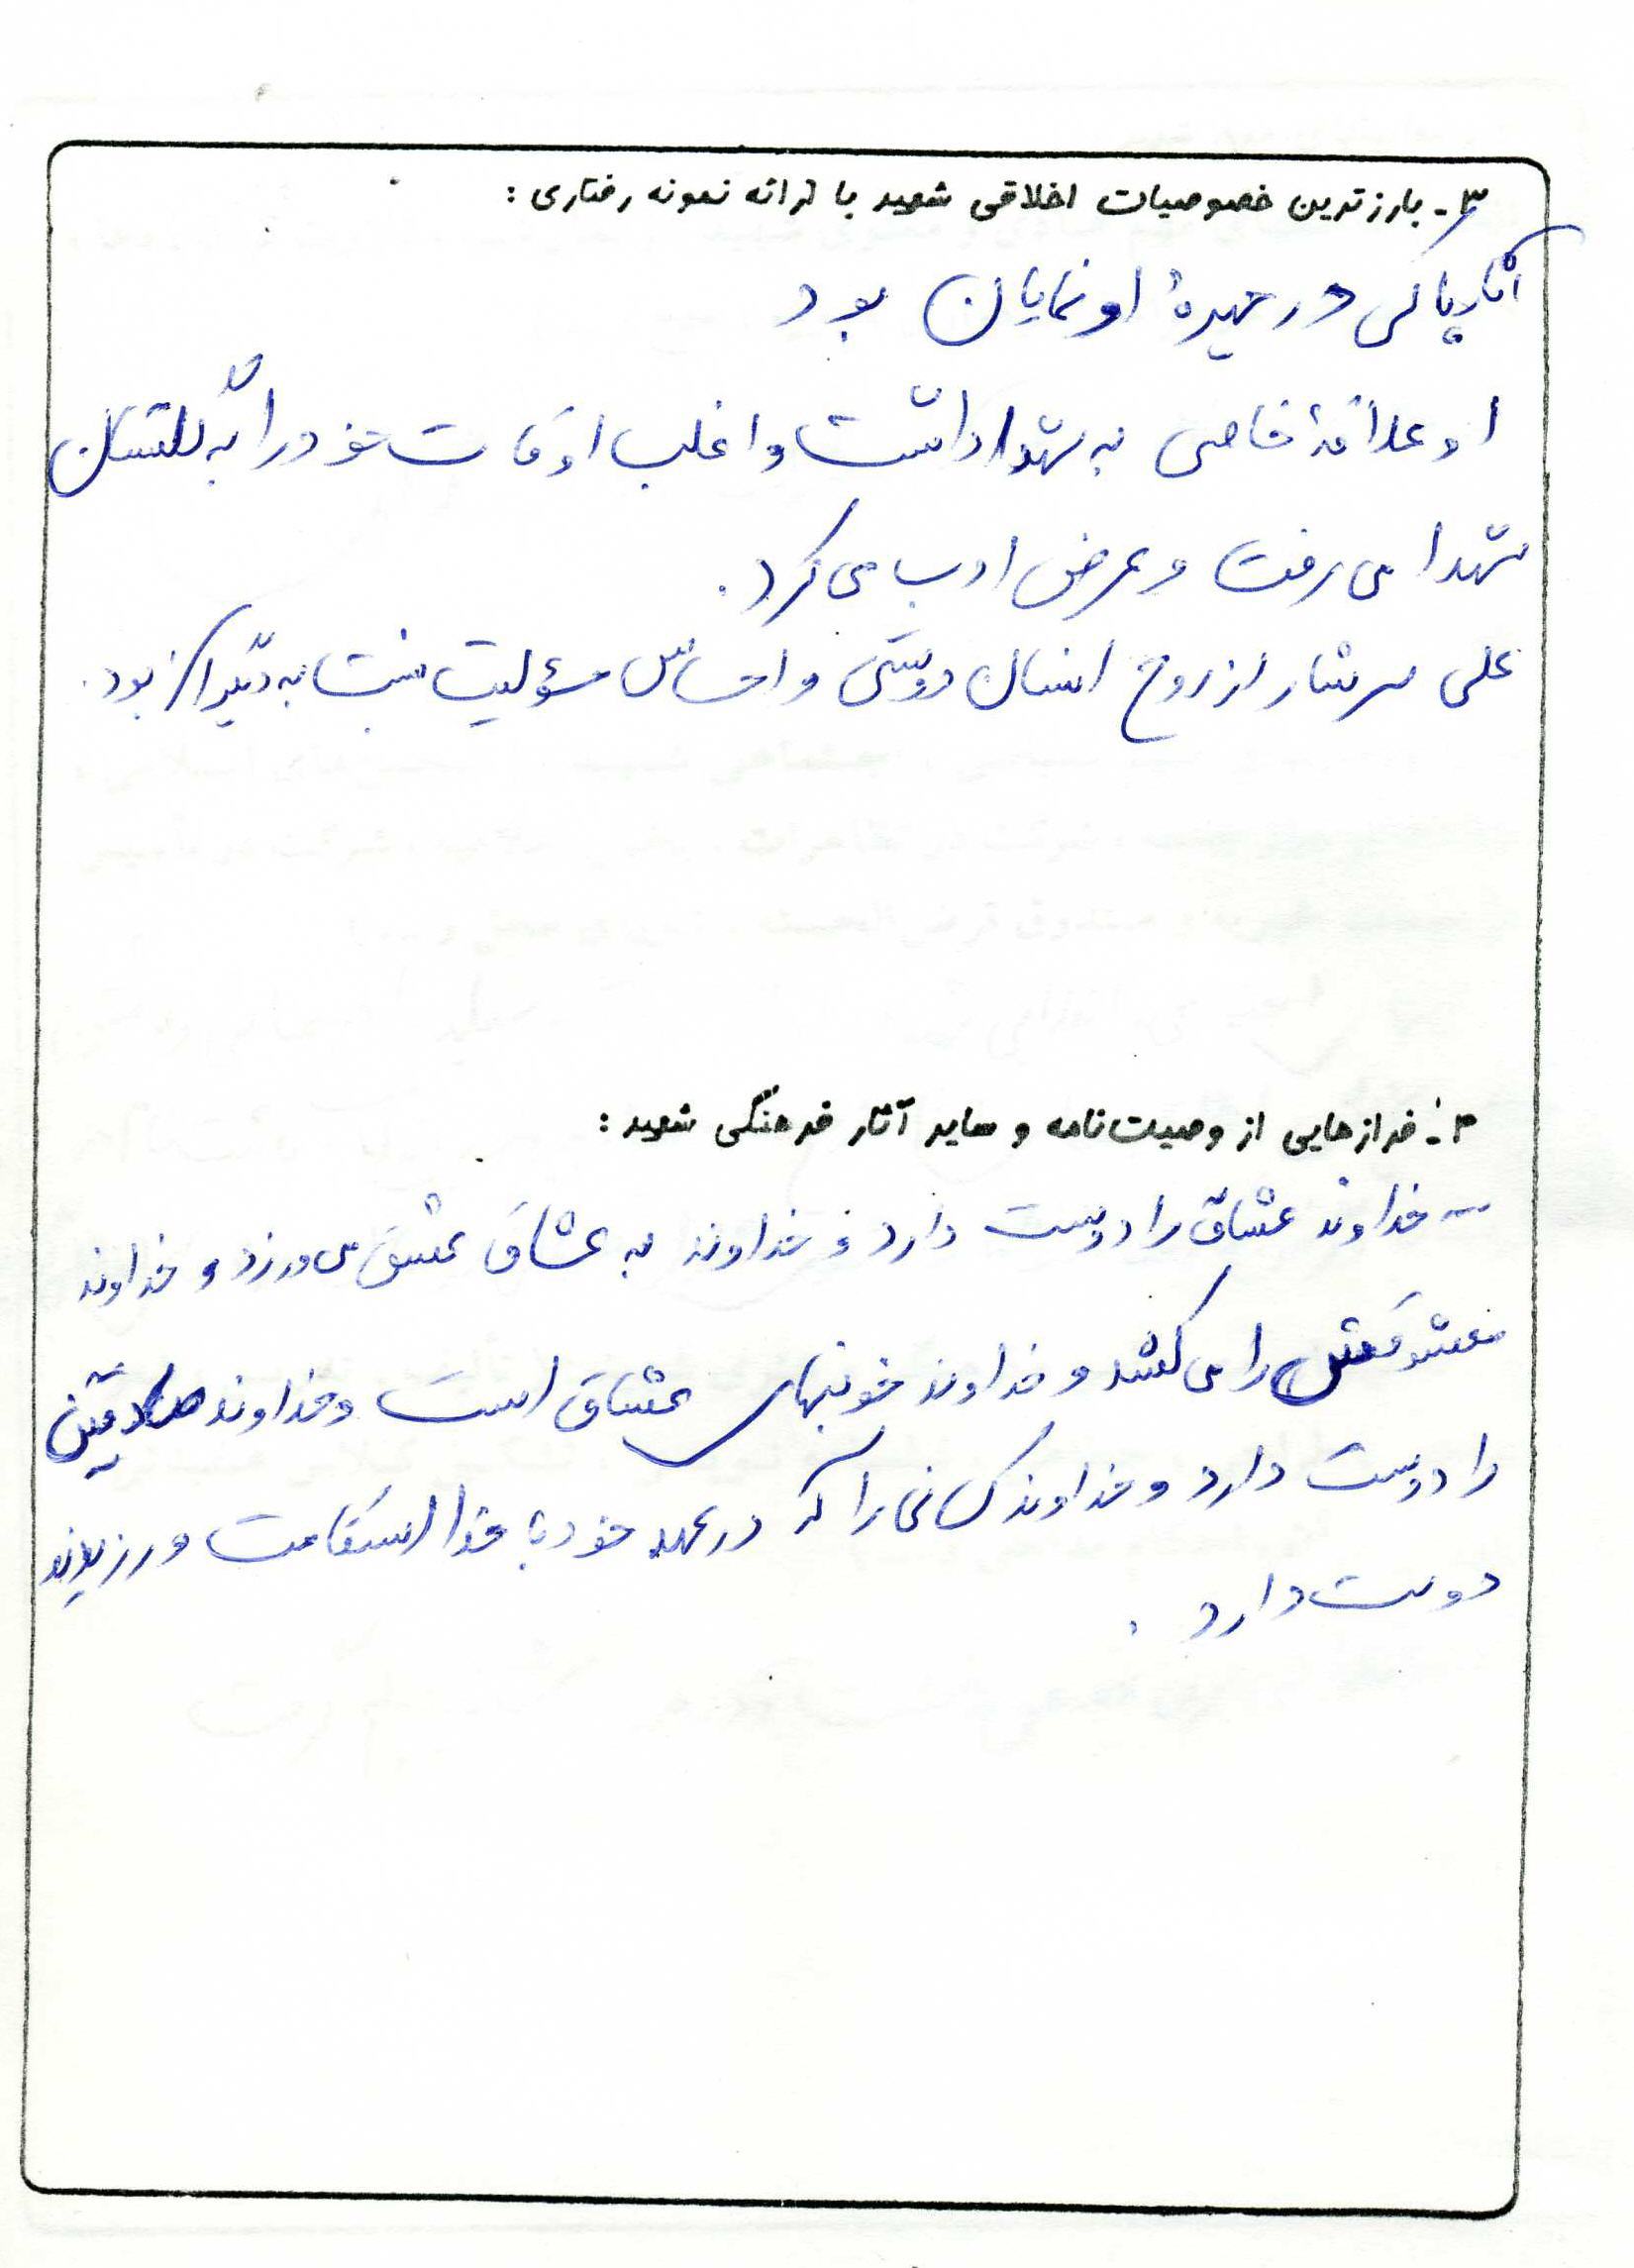 ۳- بارزترین خصوصیات اخلاقی شهید با ارائه نمونه رفتاری :
آثار پاکی در چهرهٔ او نمایان بود
او علاقهٔ خاصی به شهدا داشت و اغلب اوقات خود را به گلستان
شهدا می رفت و عرض ادب می کرد.
علی سرشار از روح انسان دوستی و احساس مسؤلیت نسبت به دیگران بود.
۴- فرازهایی از وصیت‌نامه و سایر آثار فرهنگی شهید :
- خداوند عشاق را دوست دارد و خداوند به عشاق عشق می ورزد و خداوند
معشوقش را می کشد و خداوند خونبهای عشاق است و خداوند صادقین
را دوست دارد و خداوند کسانی را که در عهد خود با خدا استقامت ورزیدند
دوست دارد .